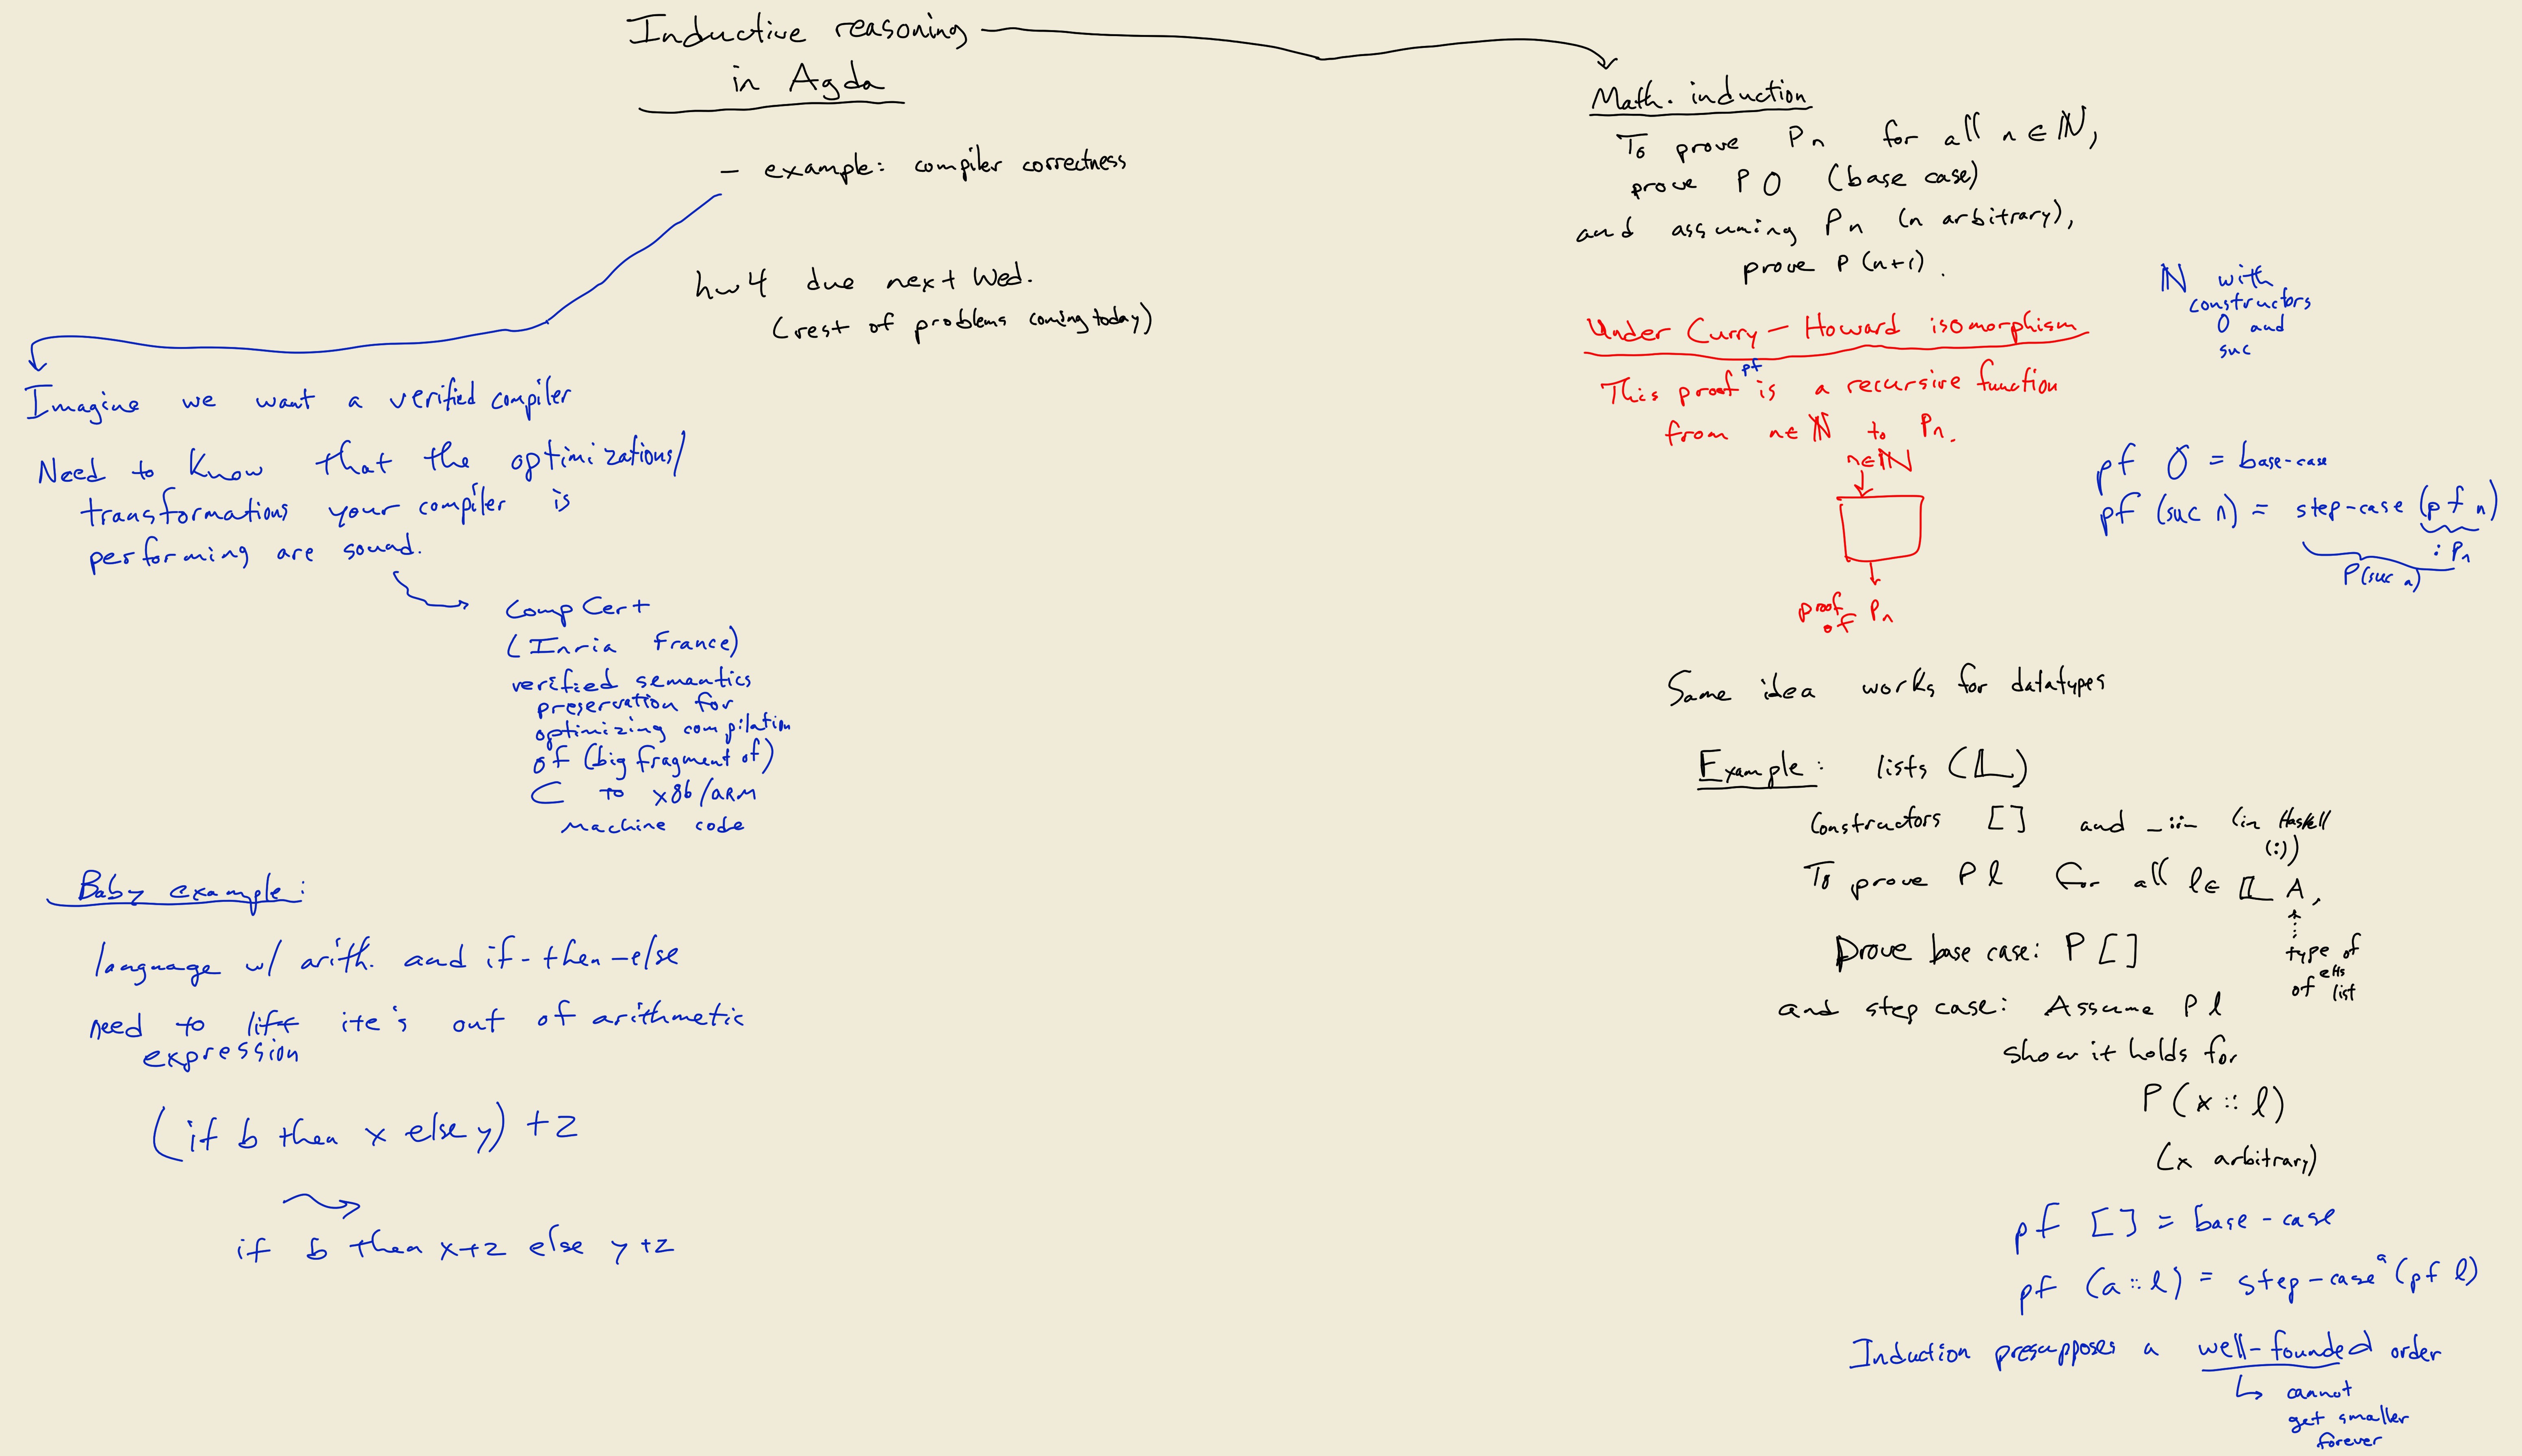 Inductive reasoning
in Agda
- example: compiler correctness
hw4 due next Wed.
(rest of problems coming today)
Imagine we want a verified compiler
Need to know that the optimizations/
transformations your compiler is
performing are sound.
CompCert
(Inria France)
verified semantics
preservation for
optimizing compilation
of (big fragment of)
C to x86/ARM
machine code
Baby example:
language w/ arith. and if-then-else
need to lift ite's out of arithmetic
expression
(if b then x else y) + z
if b then x+z else y+z
Math. induction
To prove Pn for all n ∈ ℕ,
prove P 0 (base case)
and assuming Pn (n arbitrary),
prove P (n+1).
ℕ with
constructors
0 and
suc
Under Curry-Howard isomorphism
pf
This proof is a recursive function
from n∈ℕ to Pn.
n∈ℕ
proof
of Pn
pf 0 = base-case
pf (suc n) = step-case (pf n)
: Pn
P(suc n)
Same idea works for datatypes
Example: lists (𝕃)
Constructors [] and _::_ (in Haskell
(:))
To prove P l for all l ∈ 𝕃 A,
type of
elts
of list
Prove base case: P []
and step case: Assume P l
show it holds for
P (x :: l)
(x arbitrary)
pf [] = base-case
pf (a :: l) = step-case a (pf l)
Induction presupposes a well-founded order
↳ cannot
get smaller
forever